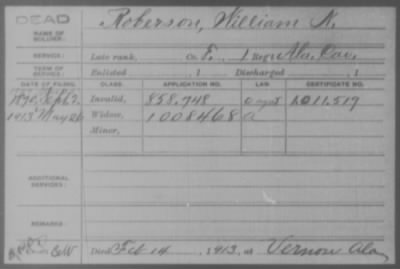 DEAD
NAME OF SOLDIER: Roberson, William N.
SERVICE: Late rank, Co. F, 1 Reg't Ala. Cav.
TERM OF SERVICE: Enlisted , 1 Discharged , 1
DATE OF FILING. CLASS. APPLICATION NO. LAW. CERTIFICATE NO.
1890, Sept. 2. Invalid, 858,748 1,011,517
1913 May 26 Widow, 1008468 a
Minor,
ADDITIONAL SERVICES:
REMARKS:
Died Feb 14, 1913, at Vernon Ala